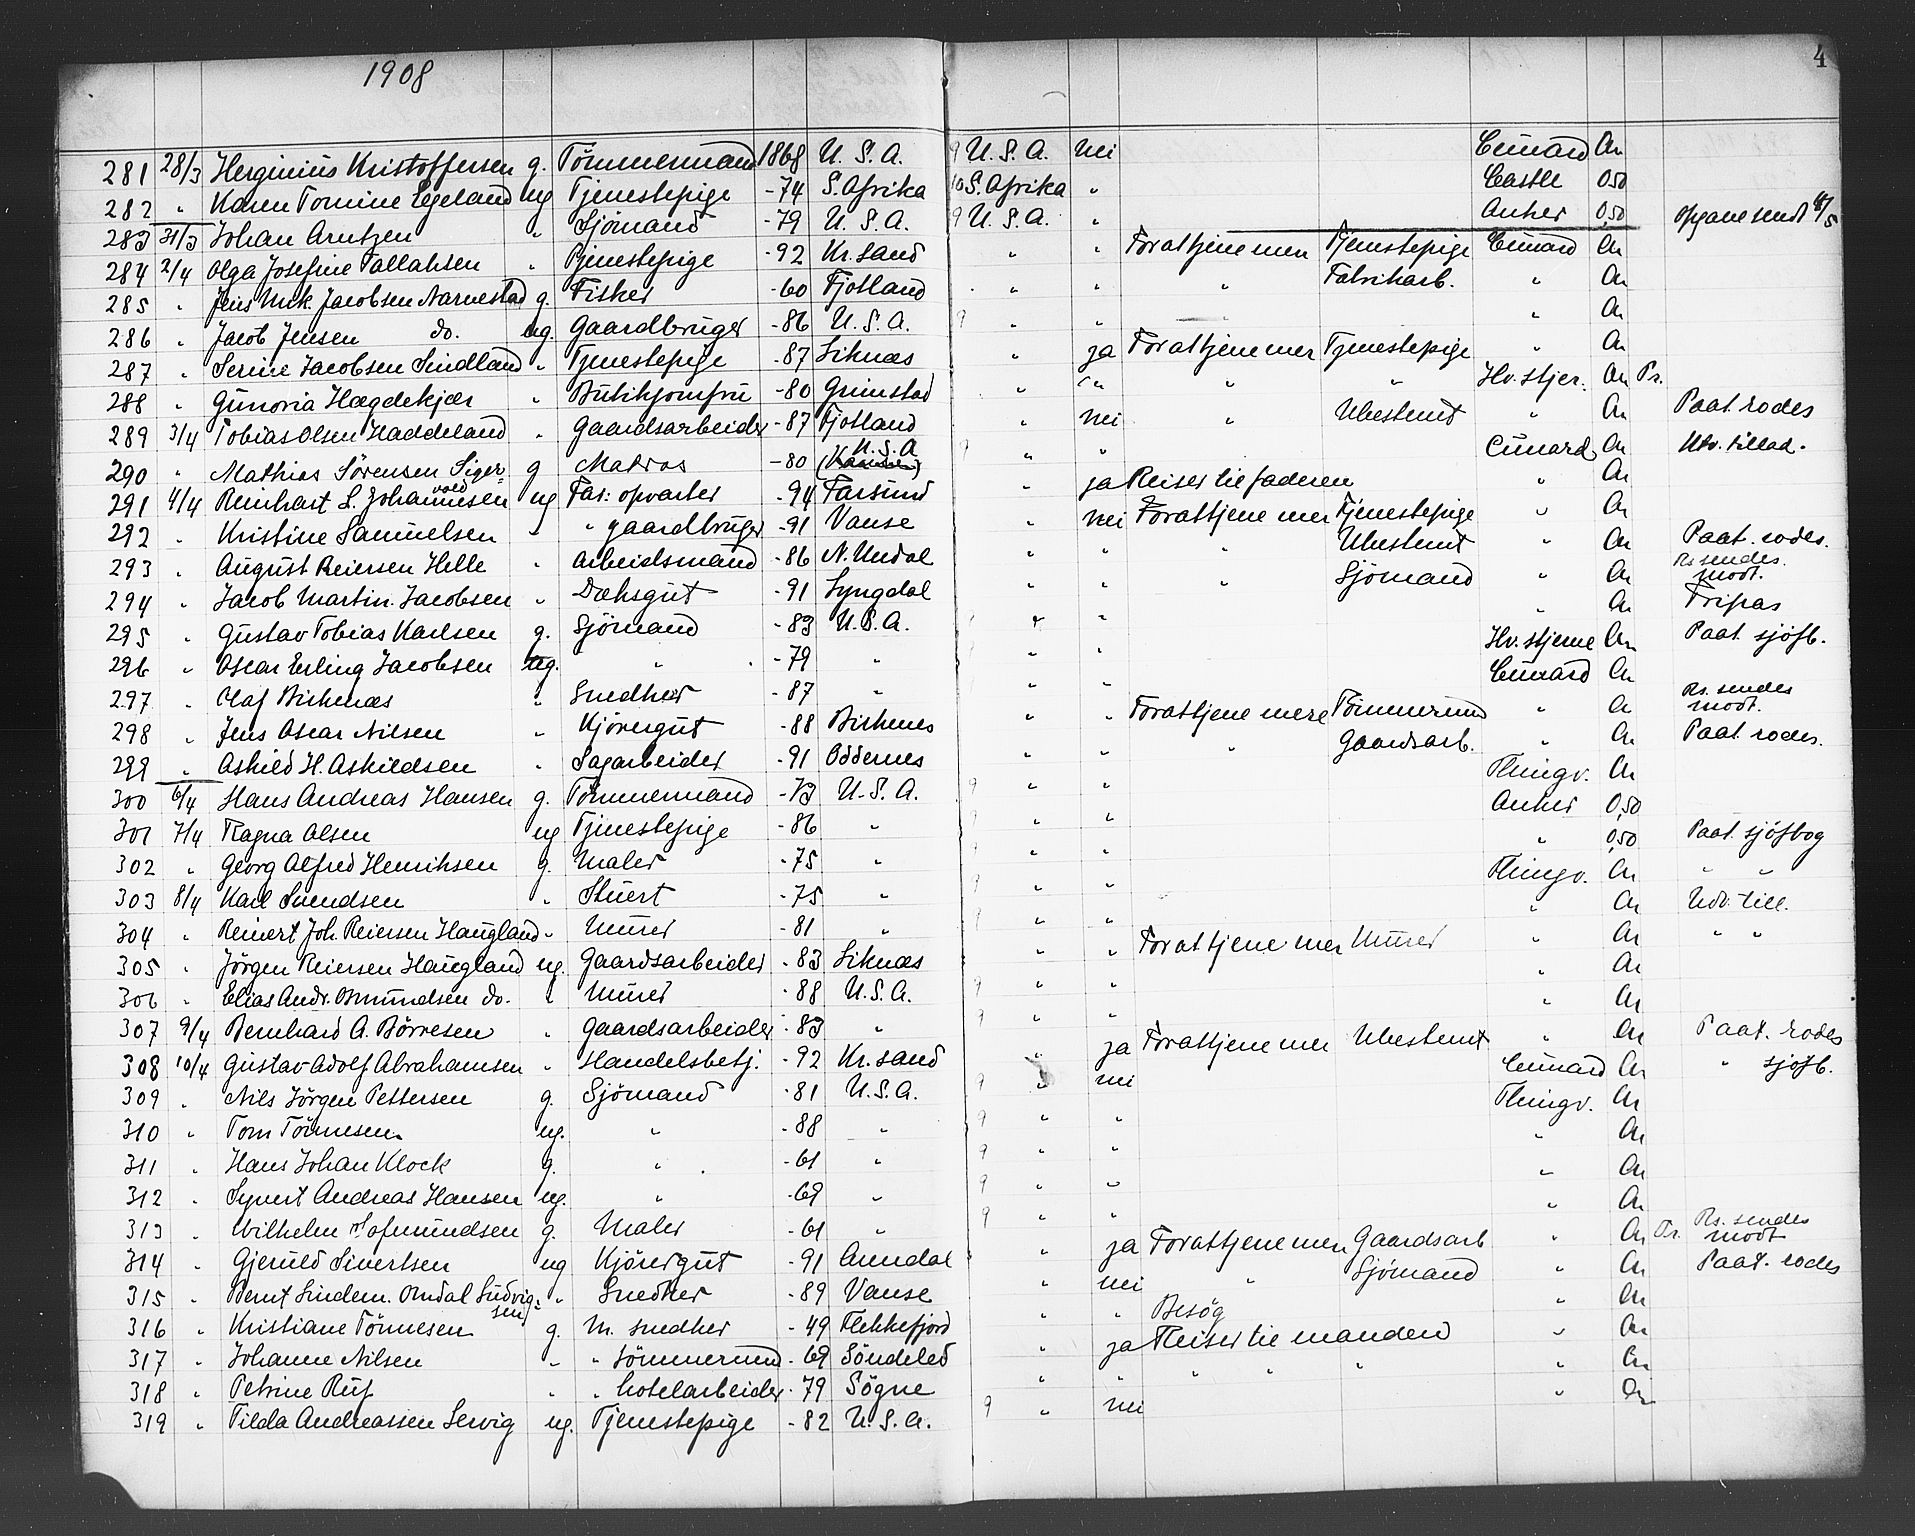 1908
4
281 28/3 Herginius Kristoffersen g. Tömmermand 1868 U. S. A. 9 U. S. A. nei Cunard An
282 " Karen Tomine Egeland ug Tjenestepige -74 S. Afrika 10 S. Afrika " Castle 0,50
283 31/3 Johan Arntzen " Sjömand -79 U. S. A. 9 U. S. A. " Anker 0,50 opgave sendt 4/5
284 2/4 Olga Josefine Tallaksen " Tjenestepige -92 Kr.sand " " Forattjene mer Tjenestepige Cunard An
285 " Jens Mik. Jacobsen Narvestad g. Fisker -60 Fjotland " " " Fabrikarb. " An
286 " Jacob Jensen do. ug. Gaardbruger -86 U. S. A. 9 " " " An
287 " Serine Jacobsen Sindland " Tjenestepige -87 Liknæs " ja Forattjene mer Tjenestepige " An
288 " Gunoria Hægdekjær " Butikjomfru -80 Grimstad " " " " Hv. stjer. An Pr.
289 3/4 Tobias Olsen Haddeland " Gaardsarbeider -87 Fjotland " nei " Ubestemt " An Paat. rodes
290 " Mathias Sörensen Sigersvold g Matros -80 U.S.A 9 " " Cunard An Utv. tillad.
291 4/4 Reinhart S. Johannesen ug Far: opvarter -94 Farsund " ja Reiser til faderen " An
292 " Kristine Samuelsen " " gaardbruger -91 Vanse " nei Forattjene mer Tjenestepige " An
293 " August Reiersen Helle " Arbeidsmand -86 N. Undal " " " Ubestemt " An Paat. rodes.
294 " Jacob Martin Jacobsen " Dæksgut -91 Lyngdal " " " Sjömand " An Rs sendes modt.
295 " Gustav Tobias Karlsen g. Sjömand -83 U.S.A. " " " An Fripas
296 " Oscar Erling Jacobsen ug. " -79 " " " Hv. stjerne An Paat. sjöfb.
297 " Olaf Birkenæs " Snedker -87 " " " Cunard An
298 " Jens Oscar Nilsen " Kjöregut -88 Birkenes " " Forattjene mere Tömmermd " An Rs. sendes modt.
299 " Askild H. Askildsen " Sagarbeider -91 Oddernes " " " Gaardsarb. " An Paat. rodes.
300 6/4 Hans Andreas Hansen g. Tömmermand -73 U.S.A. 9 " " Thingv. An
301 7/4 Ragna Olsen ug Tjenestepige -86 " 9 " " Anker 0,50
302 " Georg Alfred Henriksen g. Maler -75 " 9 " " " 0,50 Paat. sjöfbog
303 8/4 Karl Svendsen " Stuert -75 " 9 " " Thingv. An " "
304 " Reinert Joh. Reiersen Haugland " Murer -81 " 9 " " " An Udv. till.
305 " Jörgen Reiersen Haugland ug. Gaardsarbeider -83 Liknæs " " Forattjene mer Murer " An " "
306 " Elias Andr. Omundsen do. " Murer -88 U.S.A. 9 " " " An
307 9/4 Bernhard A. Börresen " Gaardsarbeider -83 " 9 " " " An
308 10/4 Gustav Adolf Abrahamsen " Handelsbetj. -92 Kr.sand " ja Forattjene mer Ubestemt " An Paat. rodes
309 " Nils Jörgen Pettersen g. Sjömand -81 U.S.A. 9 " nei Cunard An " sjöfb.
310 " Tom Tönnesen ug. " -88 " 9 " " Thingv. An
311 " Hans Johan Klock g. " -61 " 9 " " " An
312 " Syvert Andreas Hansen ug. " -69 " 9 " " " An
313 " Wilhelm Tofmundsen g. Maler -61 " 9 " " " An
314 " Gjeruld Sivertsen ug Kjöregut -91 Aamdal " ja Forattjene mer Gaardsarb " An Pr. Rs. sendes modt
315 " Bernt Lindem. Omdal Ludvigsen " Snedker -89 Vanse " nei " Sjömand " An Paat. rodes
316 " Kristiane Tönnesen g. M. snedker -49 Flekkefjord " " Besög " An
317 " Johanne Nilsen " " tömmermd -69 Söndeled " ja Reiser til manden " An
318 " Petrine Ruf " " hotelarbeider -79 Sögne " " " " " " An
319 " Tilda Andreassen Servig ug. Tjenestepige -82 U.S.A. 9 " nei " An